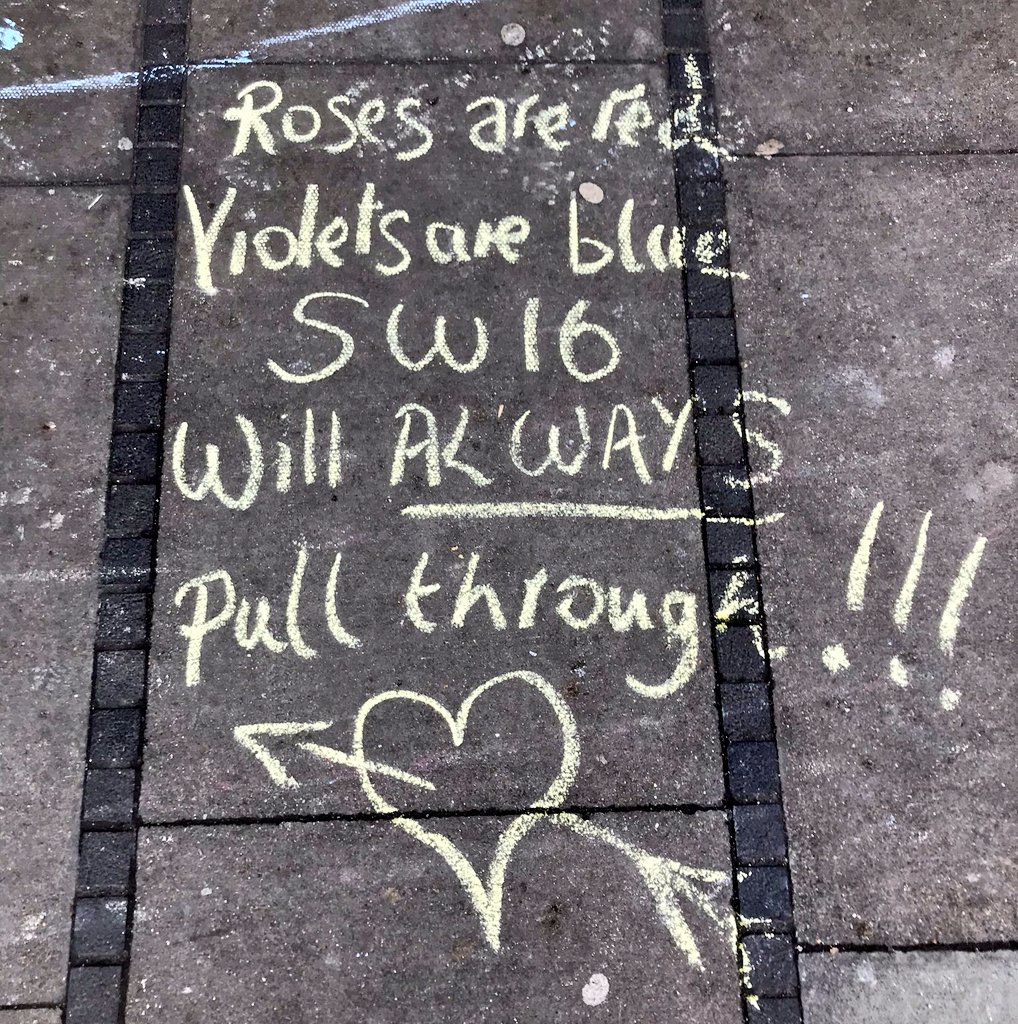 Roses are red
Violets are blue
SW16
Will ALWAYS
Pull through!!!